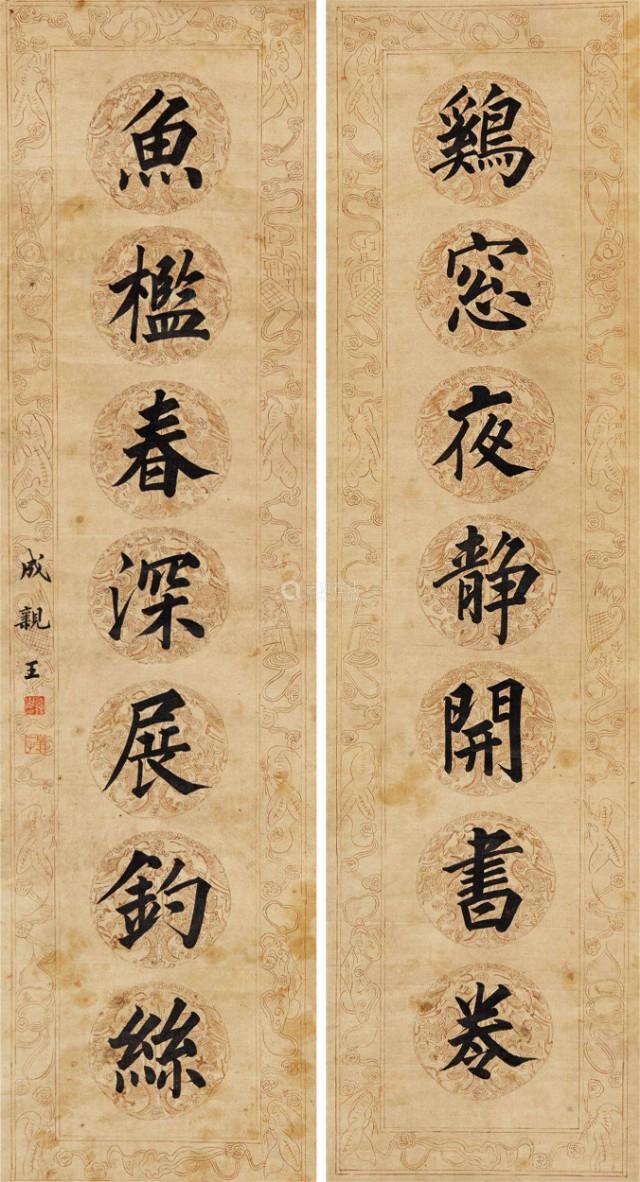 鷄窓夜静開書卷
魚檻春深展釣絲
成親王